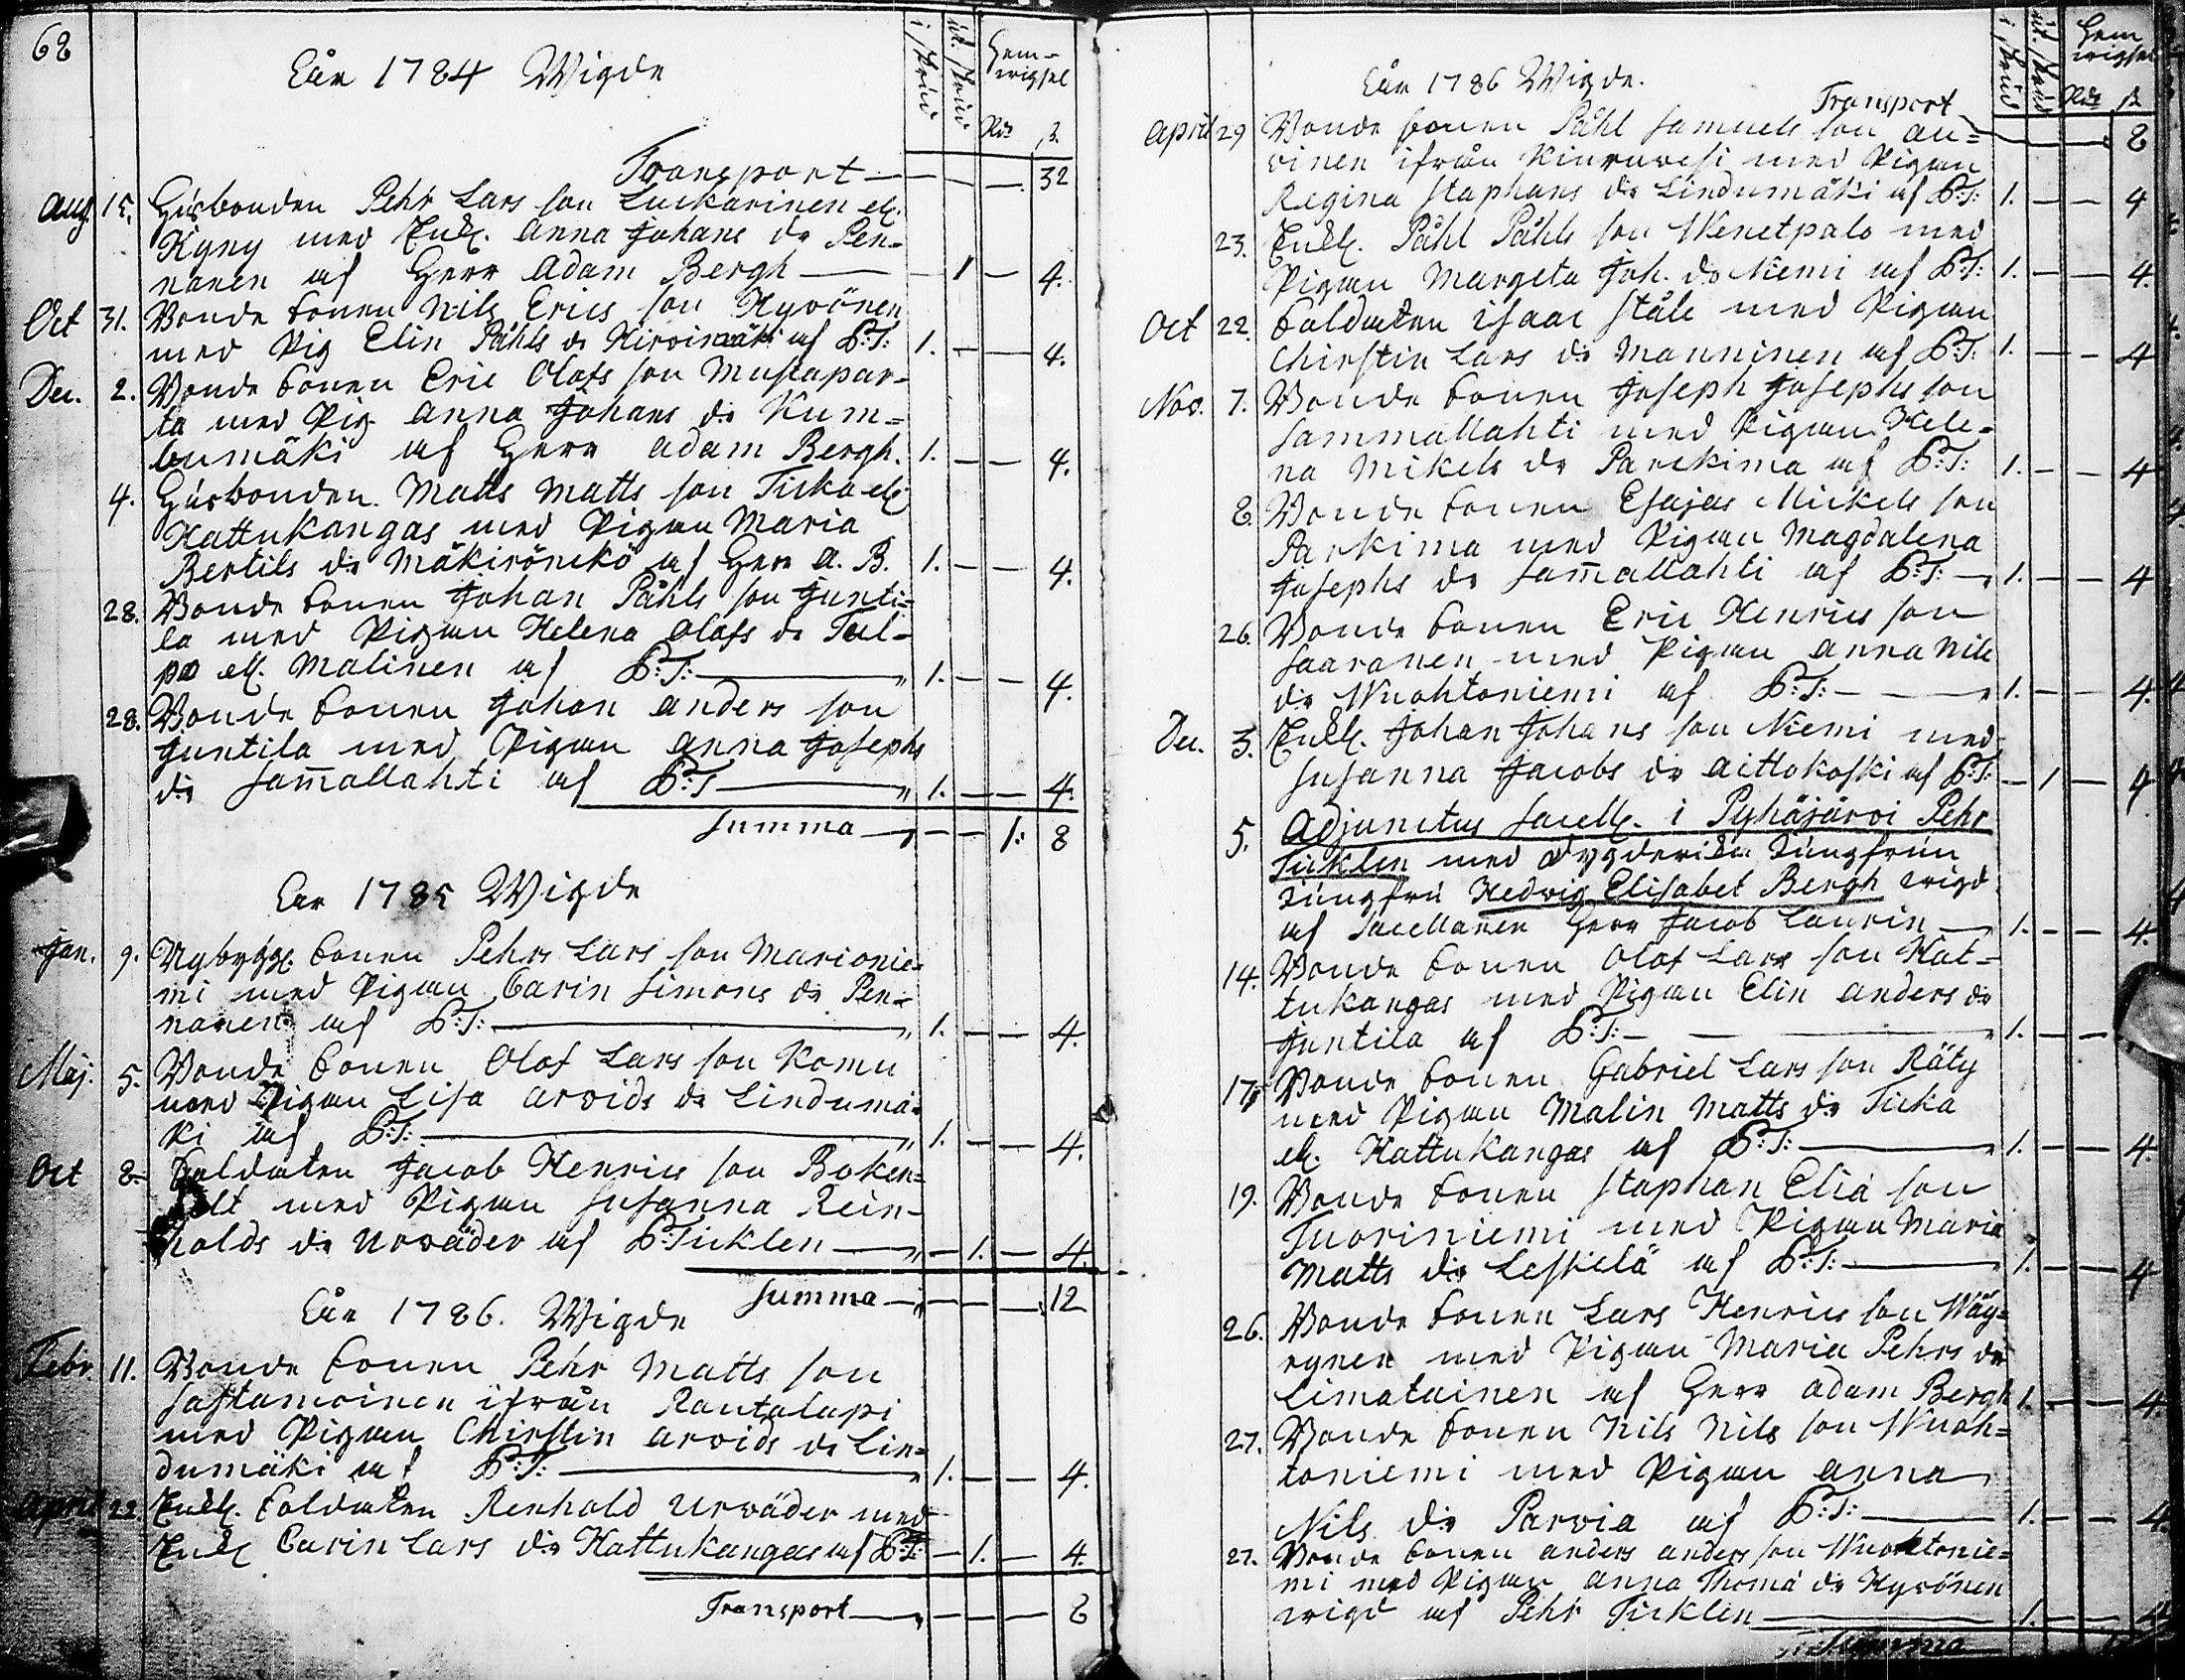 68
Åår 1784 Wigde
i skrud
ut. skrud
Hem-
wigsel
Rdr
ß.
Transport 32
Aug. 15. Husbonden Pehr Lars son Luckarinen ell.
Kyny med Enkl. Anna Johans dr Pen-
nanen af Herr Adam Bergh 1 4.
Oct 31. Bonde sonen Nils Erics son Hyvönen
med Pig Elin Påhls dr Hirvimäki af P:T: 1. 4.
Dec. 2. Bonde sonen Eric Olofs son Mustapar-
ta med Pig. Anna Johans dr Kum-
bumäki af Herr Adam Bergh. 1. 4.
4. Husbonden Matts Matts son Ticka ell.
Kattukangas med Pigan Maria
Bertils dr Mäkirönckö af Herr A. B. 1. 4.
28. Bonde sonen Johan Påhls son Junti-
la med Pigan Helena Olofs dr Tul-
po ell. Malinen af P:T: 1. 4.
28. Bonde sonen Johan Anders son
Juntila med Pigan Anna Josephs
dr Sam̄allahti af P:T 1. 4.
Summa 1: 8
Åår 1785 Wigde
Jan. 9. Nybygg. sonen Pehr Lars son Marionie-
mi med Pigan Carin Simons dr Pen-
nanen af P:T: 1. 4.
Maj. 5. Bonde sonen Olof Lars son Komu
med Pigan Lisa Arvids dr Lindumä-
ki af P:T: 1. 4.
Oct 8. Soldaten Jacob Henrics son Boken-
med Pigan Susanna Rein-
holds dr Urväder af P:Ticklen 1. 4.
Summa 12
Åår 1786. Wigde
Febr. 11. Bonde sonen Pehr Matts son
Sastamoinen ifrån Rautalapi
med Pigan Chirstin Arvids dr Lin-
dumäki af P:T: 1. 4.
April 22. Enkl. Soldaten Renhold Urväder med
Enkl Carin Lars dr Kattukangas af P:T: 1. 4.
Transport 8
Åår 1786 Wigde.
i skrud
ut. skrud
Hem
wigsel
Rdr ß
Transport 8
April 29 Bonde sonen Påhl Samuels son Au-
vinen ifrån Kiuruvesi med Pigan
Regina Staphans dr Lindumäki af P:T: 1. 4
23. Enkl. Påhl Påhls son Wenetpalo med
Pigan Margeta Joh. dr Niemi af P:T: 1. 4.
Oct 22. Soldaten Isaac Ståle med Pigan
Chirstin Lars dr Manninen af P:T: 1. 4
Nov. 7. Bonde sonen Joseph Josephs son
Sammallahti med Pigan Hele-
na Mikels dr Parckima af P:T: 1. 4
8. Bonde sonen Esajas Mickels son
Parkima med Pigan Magdalena
Josephs dr Sam̄allahti af P:T: 1. 4
26. Bonde sonen Eric Henrics son
Saaranen med Pigan Anna Nils
dr Wuohtoniemi af P:T: 1. 4.
Dec. 3. Enkl. Johan Johans son Niemi med
Susanna Jacobs dr Aittokoski af P:T: 1 4
5. Adjunctus Sacell. i Pyhäjärvi Pehr
Ticklen med Dygderika Jungfrun
Jungfru Hedvig Elisabet Bergh wigd
af Sacellanen Herr Jacob Laurin 1. 4.
14. Bonde sonen Olof Lars son Kat-
tukangas med Pigan Elin Anders dr
Juntila af P:T: 1.
17. Bonde sonen Gabriel Lars son Räty
med Pigan Malin Matts dr Ticka
ell. Kattukangas af P:T: 1. 4.
19. Bonde sonen Staphan Eliæ son
Tuoriniemi med Pigan Maria
Matts dr Leskelä af P:T: 1. 4
26. Bonde sonen Lars Henrics son Wäy-
rynen med Pigan Maria Pehrs dr
Limatainen af Herr Adam Bergh 1. 4.
27. Bonde sonen Nils Nils son Wuoh-
toniemi med Pigan Anna
Nils dr Parvia af P:T: 1. 4.
27. Bonde sonen Anders Anders son Wuohtonie-
mi med Pigan Anna Thomæ dr Hyvönen
wigd af Pehr Ticklen 1. 4.
Summa